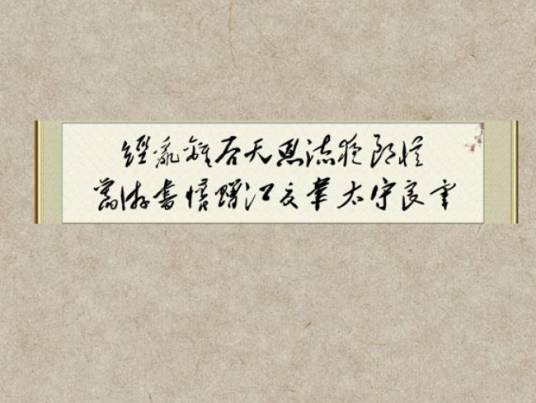 經亂離后天恩流夜郎憶
舊游書懷贈江夏韋太守良宰